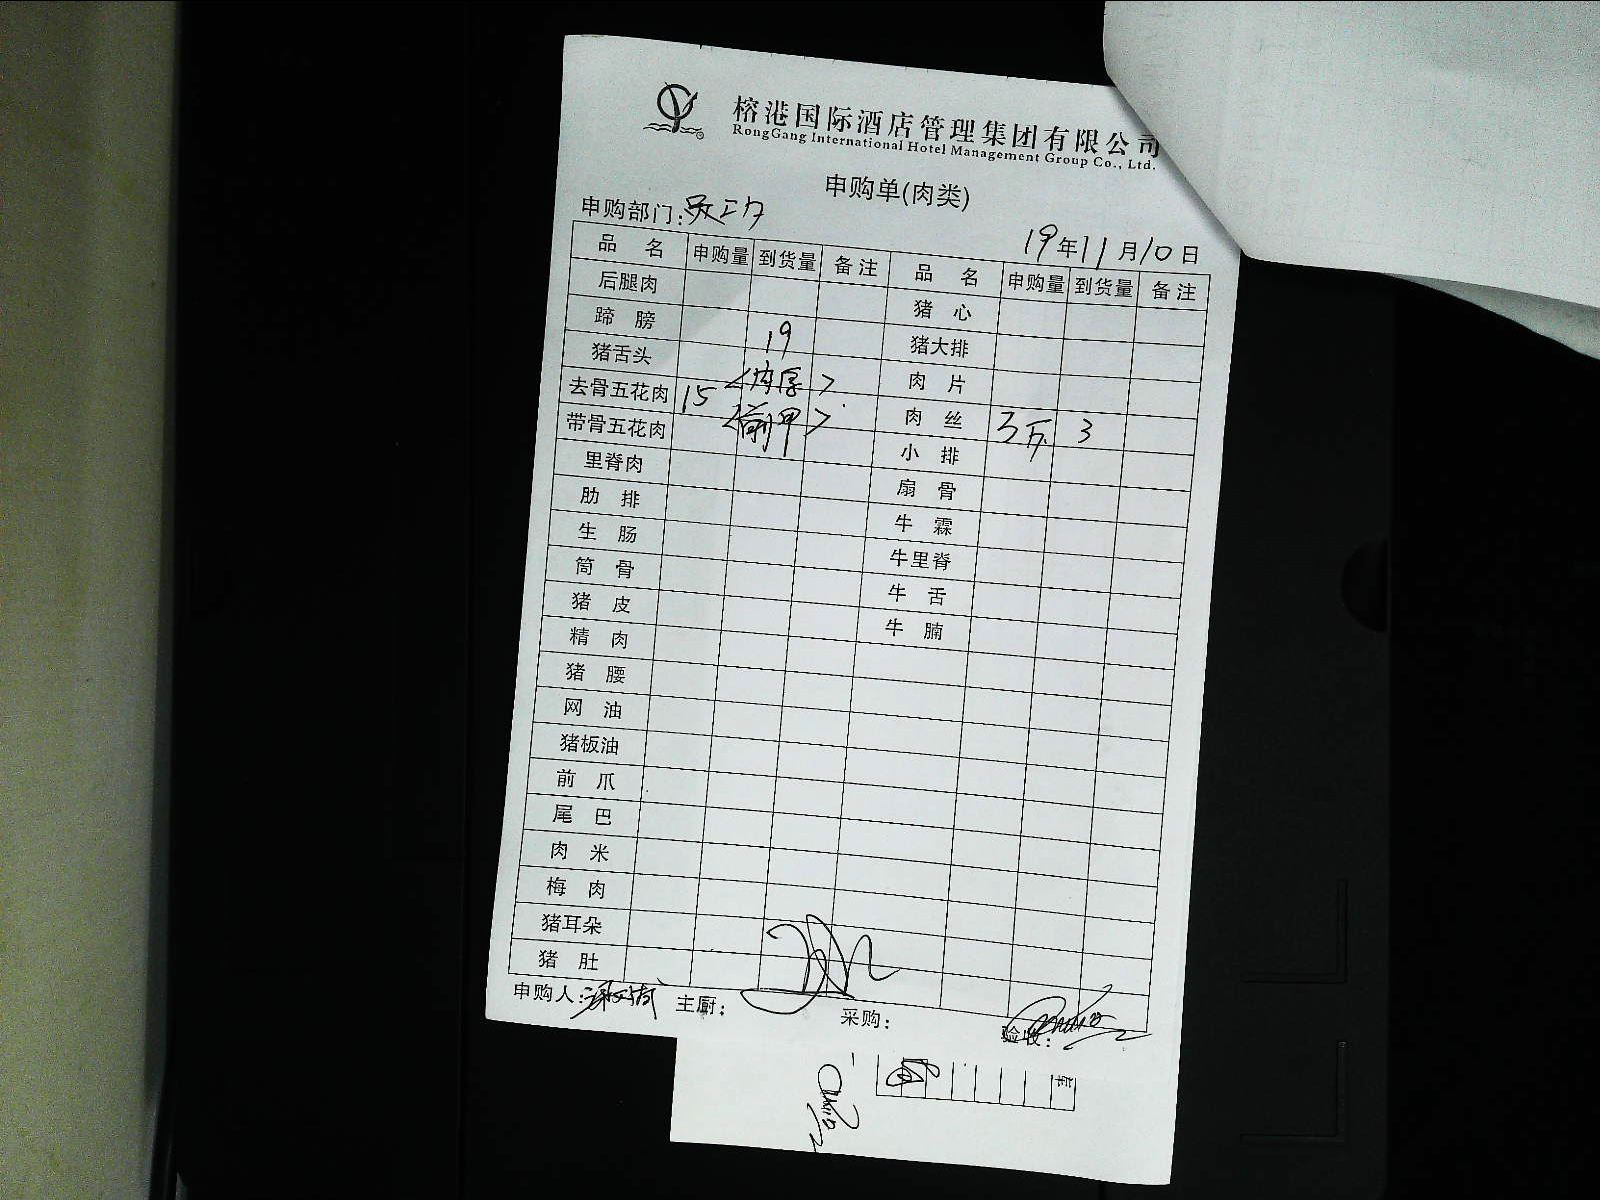 榕港国际酒店管理集团有限公司
RongGang International Hotel Management Group Co., Ltd.
申购单(肉类)
申购部门:员工厅
19年11月10日
品名 申购量 到货量 备注 品名 申购量 到货量 备注
后腿肉 猪心
蹄膀 猪大排
猪舌头 19 肉片
去骨五花肉 15 <肉厚> 肉丝 3斤 3
带骨五花肉 <前甲> 小排
里脊肉 扇骨
肋排 牛霖
生肠 牛里脊
筒骨 牛舌
猪皮 牛腩
精肉
猪腰
网油
猪板油
前爪
尾巴
肉米
梅肉
猪耳朵
猪肚
申购人: 主厨: 采购: 验收: